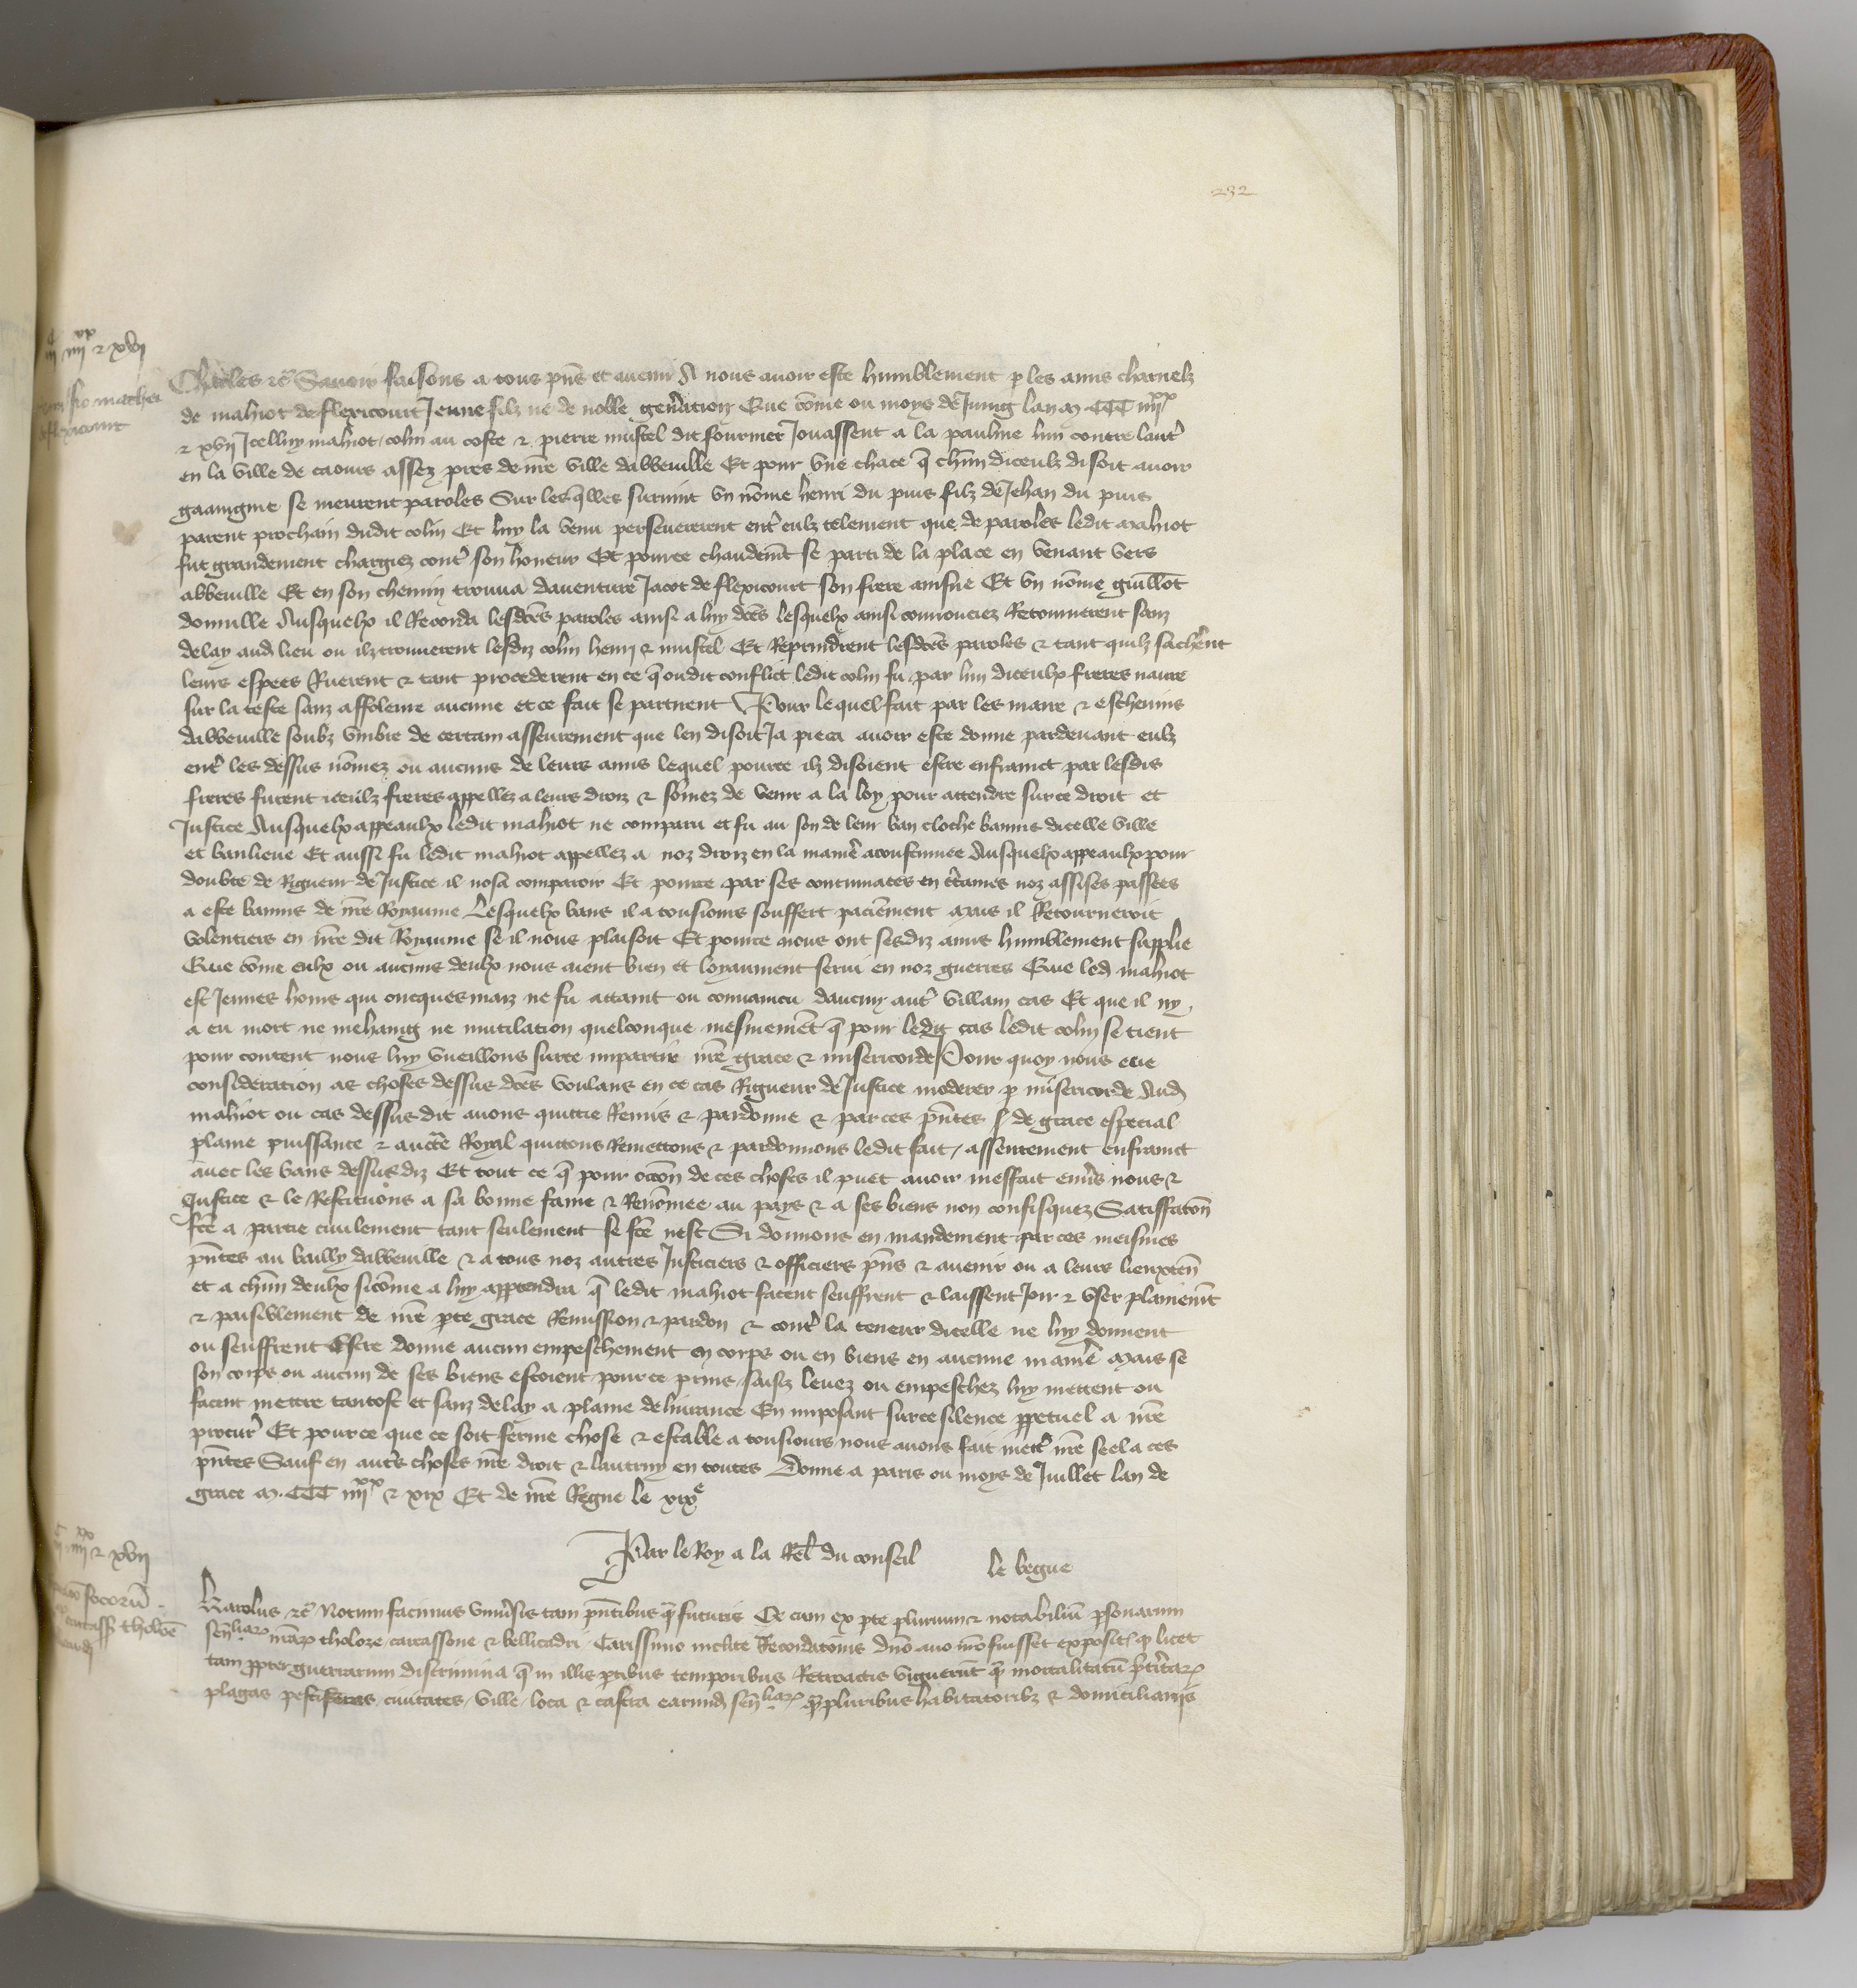 232
iiiᶜ iiiiˣˣ & xvii
remissio mathei
de flexicourt
Charles &c̄ Savoir faisons a tous p̄ns et avenir A nous avoir este humblement p les amis charnelz
de mahiot de flexicourt Jeune filz ne de noble gen̄ation Que cōme ou moys de Juing lan m CCC iiiiˣˣ
& xvii Jcelluy mahiot colin au coste & pierre mustel dit fourmer Jouassent a la paulme lun contre laut̄
en la ville de caours assez pres de n̄re ville dabbeville Et pour une chace q̄ chūn diceulz disoit avoir
gaaingnie se meurent paroles Sur lesq̄lles survint un nōme henri du puis filz de Jehan du puis
parent prochain dudit colin Et luy la venu persevererent ent̄ eulz telement que de paroles ledit mahiot
fut grandement chargiez cont̄ son honeur Et pource chaudem̄t se parti de la place en venant vers
abbeville Et en son chemin trouva daventure Jacot de flexicourt son frere ainsne Et un nōme guillot
donville Ausquelx il Recorda lesd̄ces paroles ainsi a luy d̄ces lesquelx ainsi couroucez Retournerent sanz
delay aud lieu ou ilz trouverent lesdiz colin henry & mustel Et Reprindrent lesd̄ces paroles & tant quilz sach̄ent
leurs espees Ruerent & tant procederent en ce q̄ oudit conflict ledit colin fu par lun diceulx freres navre
sur la teste sanz affoleure aucune et ce fait se partirent Pour lequel fait par les maire & eschevins
dabbeville soubz umbre de certain asseurement que len disoit Ja pieca avoir este donne pardevant eulz
ent̄ les dessus nōmez ou aucuns de leurs amis lequel pource ilz disoient estre enfraint par lesdis
freres furent iceulz freres appellez a leurs droiz & sōmez de venir a la loy pour attendre sur ce droit et
Justice Ausquelx appeaulx ledit mahiot ne comparu et fu au son de leur ban cloche bannis dicelle ville
et banlieue Et aussi fu ledit mahiot appellez a noz droiz en la manīe acoustumee Ausquelx appeaulx pour
doubte de Rigueur de Justice il nosa comparoir Et pource par ses contumaces en c̄taines noz assises passees
a este bannis de n̄re Royaume Lesquelx bans il a tousiours souffert paciēment mais il Retourneroit
volentiers en n̄re dit Royaume se il nous plaisoit Et pource nous ont sesdiz amis humblement supplie
Que cōme eulx ou aucuns deulx nous aient bien et loyaument servi en noz guerres Que led mahiot
est Jeunes homs qui oncques maiz ne fu attaint ou convaincu daucun aut̄ villain cas Et que il ny
a eu mort ne mehaing ne mutilacion quelconque mesmemēt q̄ pour ledit cas ledit colin se tient
pour content nous luy vueillons sur ce impartir n̄re grace & misericorde Pour quoy nous eue
consideration as choses dessus d̄ces voulans en ce cas Rigueur de Justice moderer p misericorde Aud
mahiot ou cas dessus dit avons quitte Remis & pardonne & par ces p̄ntes de grace especial
plaine puissance & auctē Royal quittons Remettons & pardonnons ledit fait / asseurement enfraint
avec les bans dessusdiz Et tout ce q̄ pour occōn de ces choses il puet avoir meffait env̄s nous &
Justice & le Restituons a sa bonne fame & Renōmee au pays & a ses biens non confisquez Satiffacōn
f̄ce a partie civilement tant seulement se f̄ce nest Si donnons en mandement par ces meismes
p̄ntes au bailly dabbeville & a tous noz autres Justiciers & officiers p̄ns & avenir ou a leurs lieuxten̄
et a chūn deulx sicōme a luy app̄tendra q̄ ledit mahiot facent seuffrent & laissent Joir & user plainem̄t
& paisiblement de n̄re p̄nte grace Remission & pardon & cont̄ la teneur dicelle ne luy donnent
ou seuffrent Estre donne aucun empeschement en corps ou en biens en aucune manīe mais se
son corps ou aucun de ses biens estoient pource prins saisiz levez ou empeschez luy mettent ou
facent mettre tantost et sanz delay a plaine delivrance En imposant sur ce silence p̱petuel a n̄re
procur̄ Et pource que ce soit ferme chose & estable a tousiours nous avons fait mett̄ n̄re seel a ces
p̄ntes Sauf en aut̄s choses n̄re droit & lautruy en toutes Donne a paris ou moys de Juillet lan de
grace m. CCC iiiiˣˣ & xix Et de n̄re Regne le xixᵉ
Par le Roy a la Rel̄ du conseil le begue
iiiᶜ iiiiˣˣ & xvii
focorū
carcass̄ tholoē
Karolus &c̄ Notum facimus univ̄sis tam p̄ntibus q̄ futuris Q̄ cum ex p̱te plurium & notabiliū p̱sonarum
sen̄liar̄ n̄rar̄ tholoze carcassone & bellicadri Carissimo inclite Recordacōnis dn̄o avo n̄ro fuisset exposit̄ q̄ licet
tam p̱pter guerrarum discrimina q̄ in illis p̱tibus temporibus Retroactis viguerūt q̄ mortalitatū p̄tītar̄
plagas pestiferas civitates / ville / loca & castra earund̄ sen̄liar̄ q̄ pluribus habitatoribz & domiciliariis